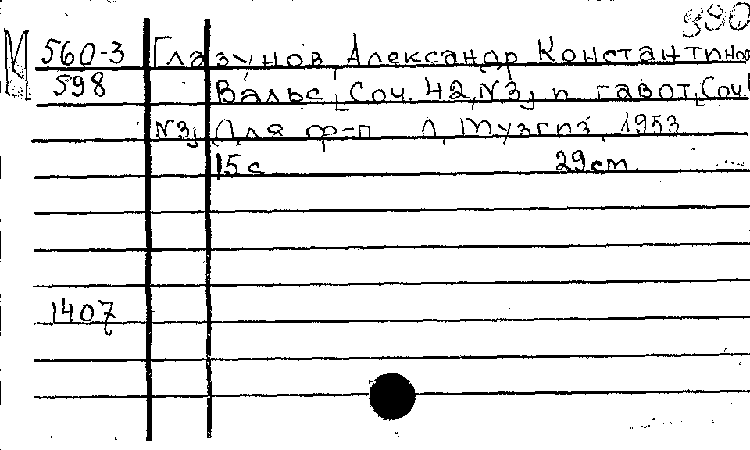 990
М 560-3 Глазунов, Александр Константинов
598 Вальс [Соч. 42, N3] и гавот [Соч.
N3] Для ф-п Л, Музгиз, 1953
15 с 29 cm
1407